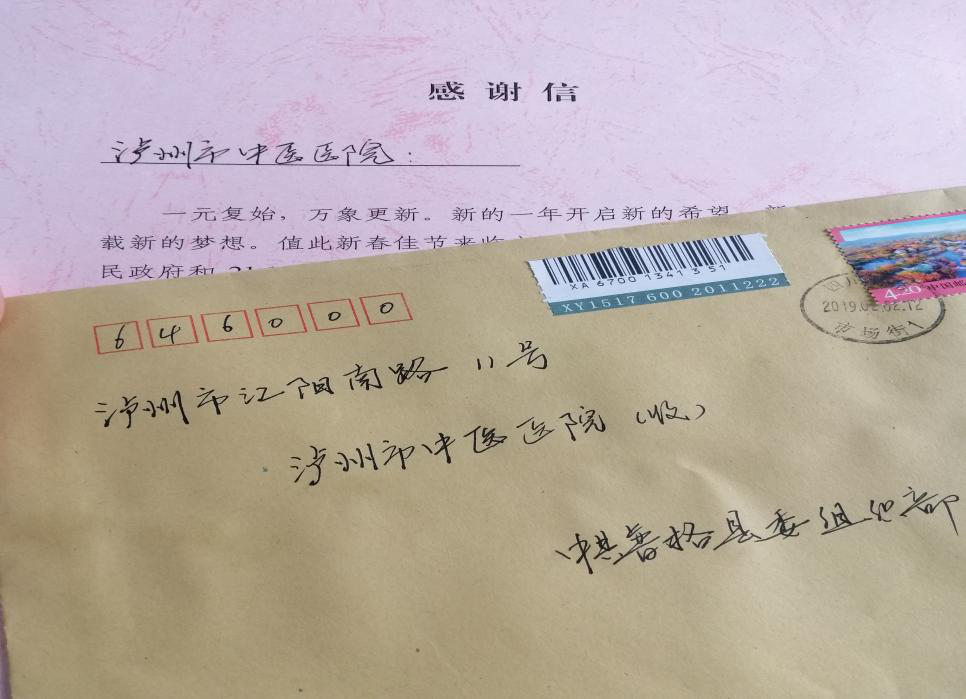 感谢信
泸州市中医医院：
一元复始，万象更新。新的一年开启新的希望
载新的梦想。值此新春佳节来临
民政府和 21
XA 6700 1341 3 51
XY1517 600 2011222
4.20 中国邮
四川
2019.02.02.12
市场街1
646000
泸州市江阳南路 11号
泸州市中医医院（收）
中共普格县委组织部